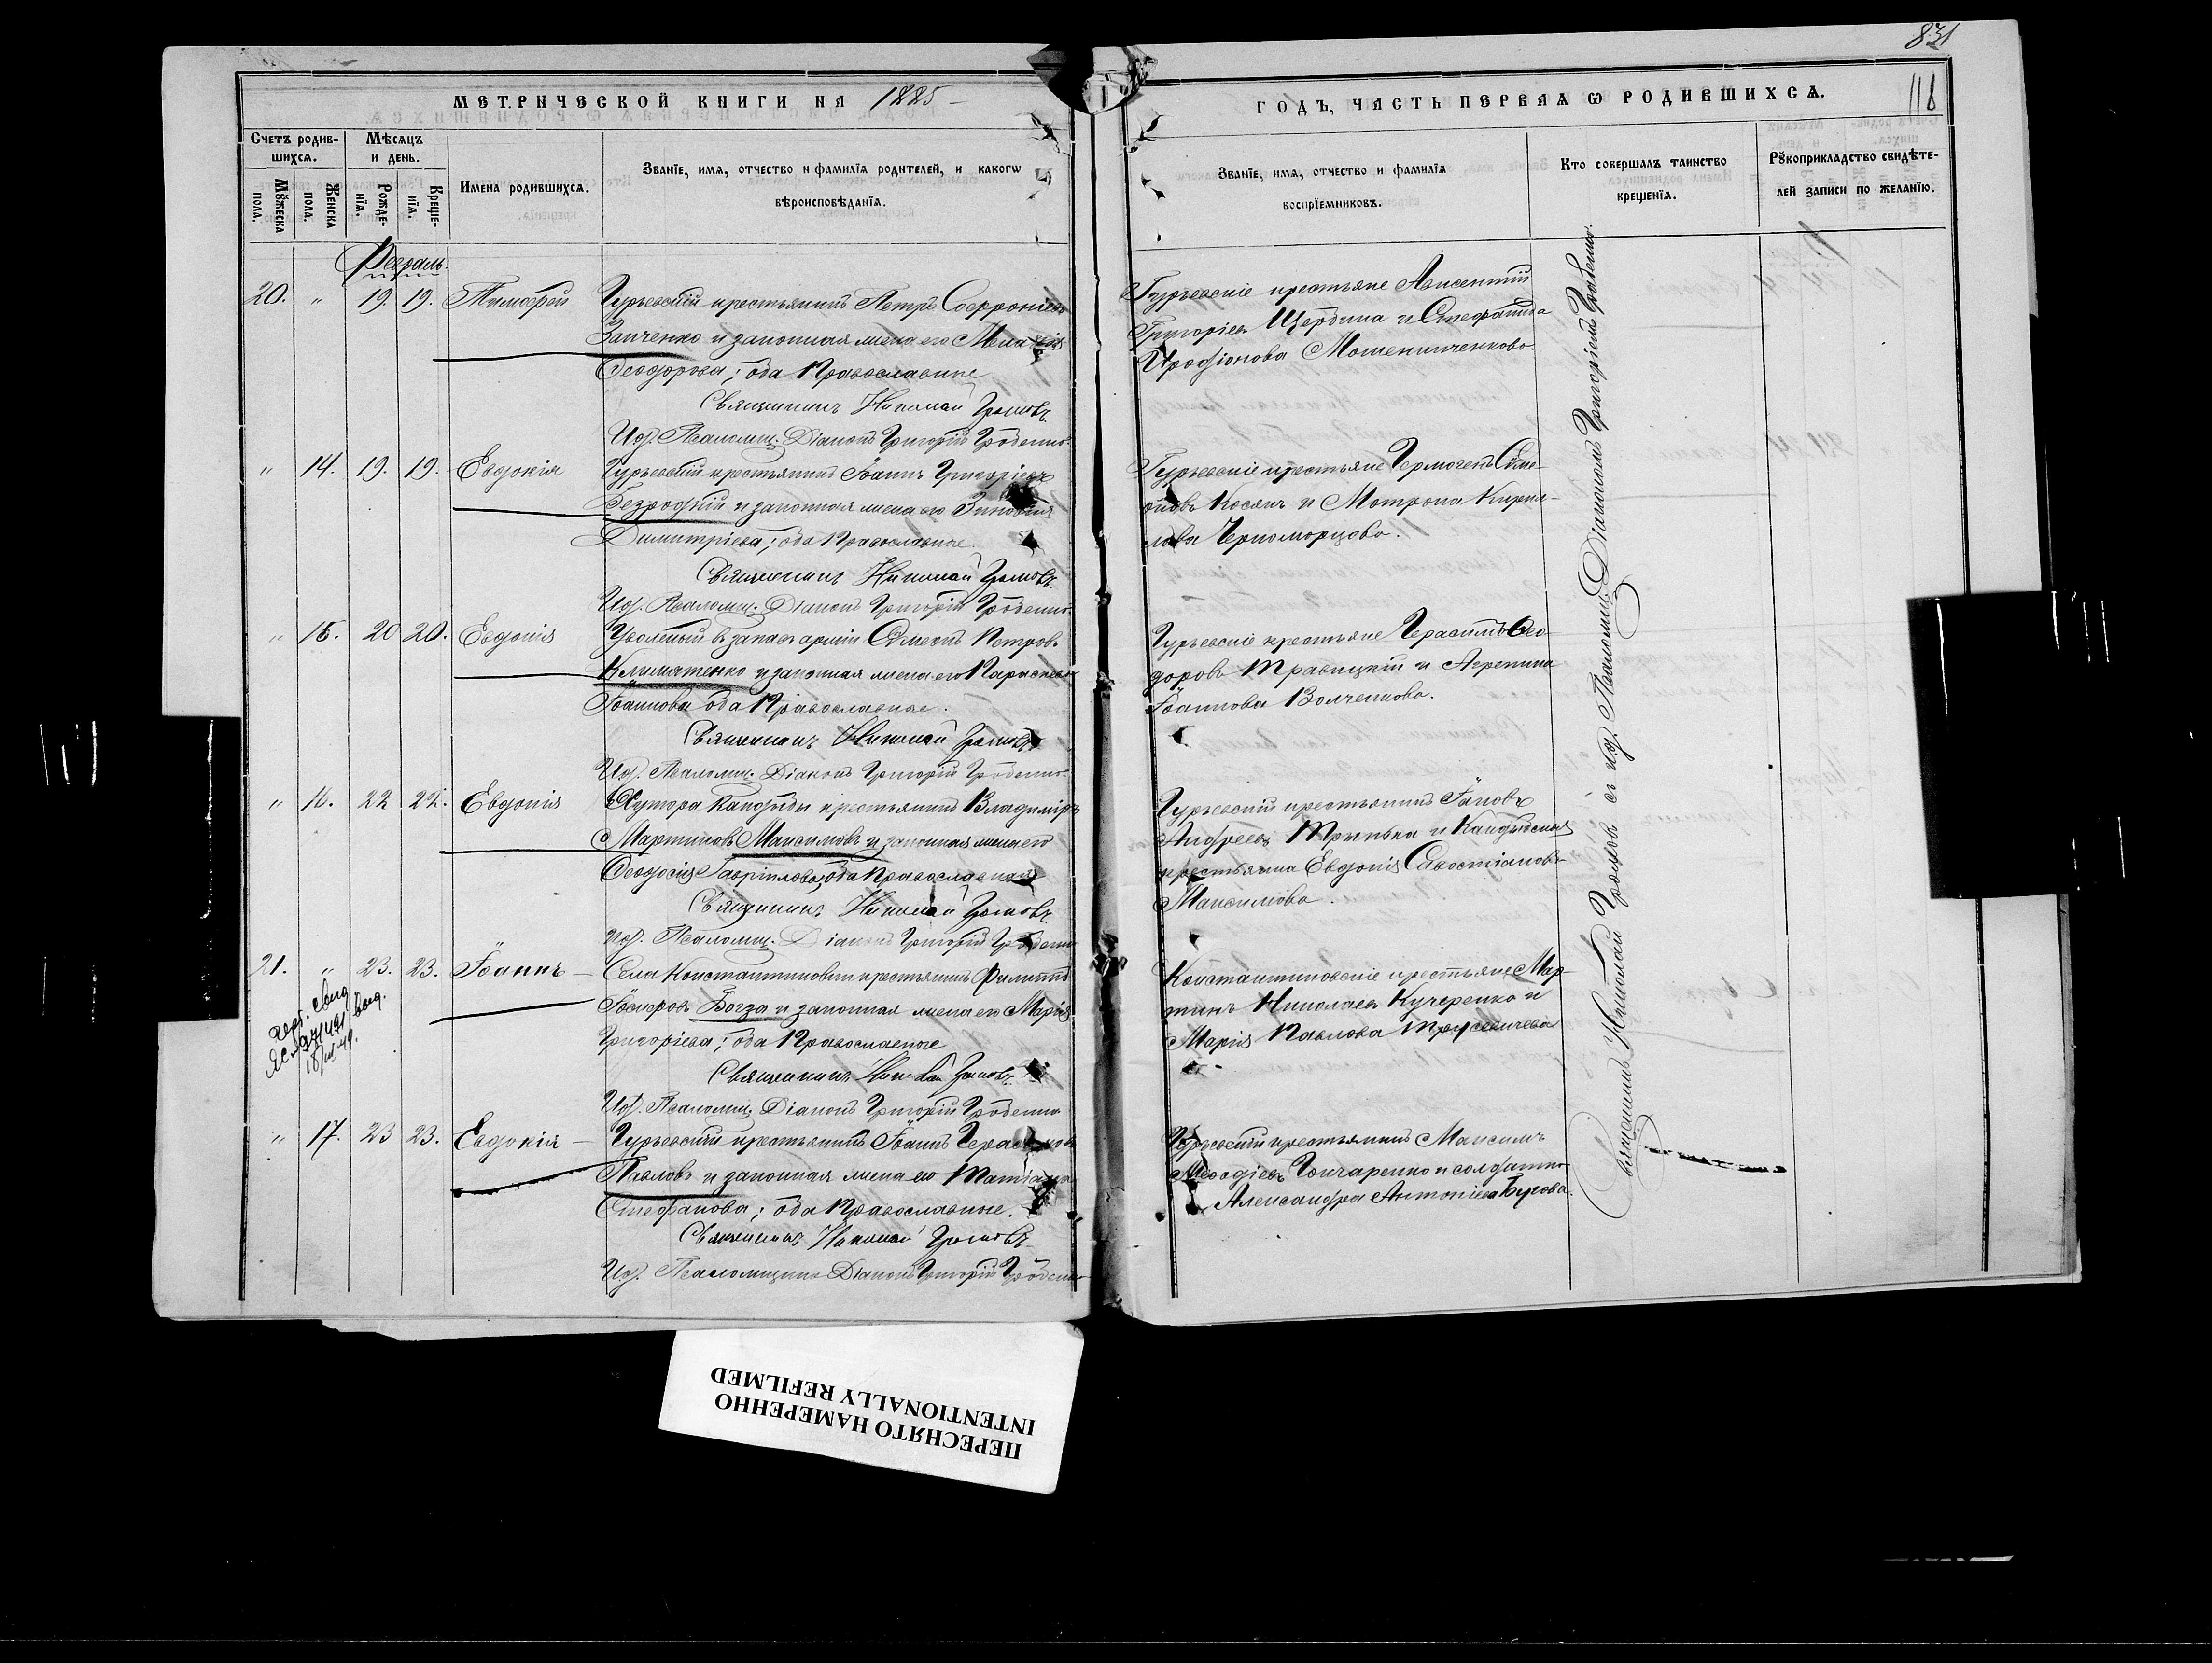 831
118
МЕТРИЧЕСКОЙ КНИГИ НА 1885
ГОДЪ, ЧАСТЬ ПЕРВАѦ Ѡ РОДИВШИХСѦ.
Счетъ родив-
шихсѧ.
Мꙋжеска пола.
Женска пола.
Мѣсѧцъ
и день.
Рожде-
нїѧ.
Креще-
нїѧ.
Имена родившихсѧ.
Званїе, имѧ, отчество и фамилїѧ родителей, и какогѡ
вѣроисповѣданїѧ.
Званїе, имѧ, отчество и фамилїѧ
воспрїемниковъ.
Кто совершалъ таинство
крещенїѧ.
Рꙋкоприкладство свидѣте-
лей записи по желанїю.
Февраль.
20. " 19. 19. Тимофей
Гурьевскій крестьянинъ Петръ Софроніевъ
Заиченко и законная жена его Меланія
Ѳеодорова; оба Православные
Священникъ Николай Громовъ
И.д. Псаломщ. Діаконъ Григорій
Гурьевскіе крестьяне Авксентій
Григоріевъ Щербина и Стефанида
Иродіонова
" 14. 19. 19. Евдокія
Гурьевскій крестьянинъ Іоаннъ Григоріевъ
Безродній и законная жена его Зиновія
Димитріева; оба Православные
Священникъ Николай Громовъ
И.д. Псаломщ. Діаконъ Григорій
Гурьевскіе крестьяне Гермогенъ Симе-
оновъ Косякъ и Матрона Кирил-
лова Черноморцова.
" 15. 20 20. Евдокія
Уволеный въ запасъ арміи Симеонъ Петровъ
Климатенко и законная жена его Параскева
Іоаннова оба Православные.
Священникъ Николай Громовъ
И.д. Псаломщ. Діаконъ Григорій
Гурьевскіе крестьяне Герасимъ Ѳео-
доровъ Травицкій и Агрепина
Іоаннова Волченкова.
" 16. 22 22. Евдокія
Хутора Кандыбы крестьянинъ Владиміръ
Мартиновъ Максимовъ и законная жена его
Ѳеодосія Гавріилова; оба Православные
Священникъ Николай Громовъ
И.д. Псаломщ. Діаконъ Григорій
Гурьевскій крестьянинъ Іаковъ
Андреевъ и Кандыбская
крестьянка Евдокія Савостіанова
Максимова.
21. " 23. 23. Іоаннъ
Села Константиновки крестьянинъ Филиппъ
Богза и законная жена его Марія
Григоріева; оба Православные
Священникъ Николай Громовъ
И.д. Псаломщ. Діаконъ Григорій
Константиновскіе крестьяне Мар-
тинъ Николаевъ Кучеренко и
Марія Павлова Трусевичева
" 17. 23 23. Евдокія
Гурьевскій крестьянинъ Іоаннъ Герасимовъ
Павловъ и законная жена его Татіана
Стефанова; оба Православные.
Священникъ Николай Громовъ
И.д. Псаломщика Діаконъ Григорій
Гурьевскій крестьянинъ Максимъ
Меѳодіевъ Гончаренко и солдатка
Александра Антоніева Бурова.
Священникъ Николай Громовъ съ и.д. Псаломщ. Діакономъ Григоріемъ
ПЕРЕСНЯТО НАМЕРЕННО
INTENTIONALLY REFILMED